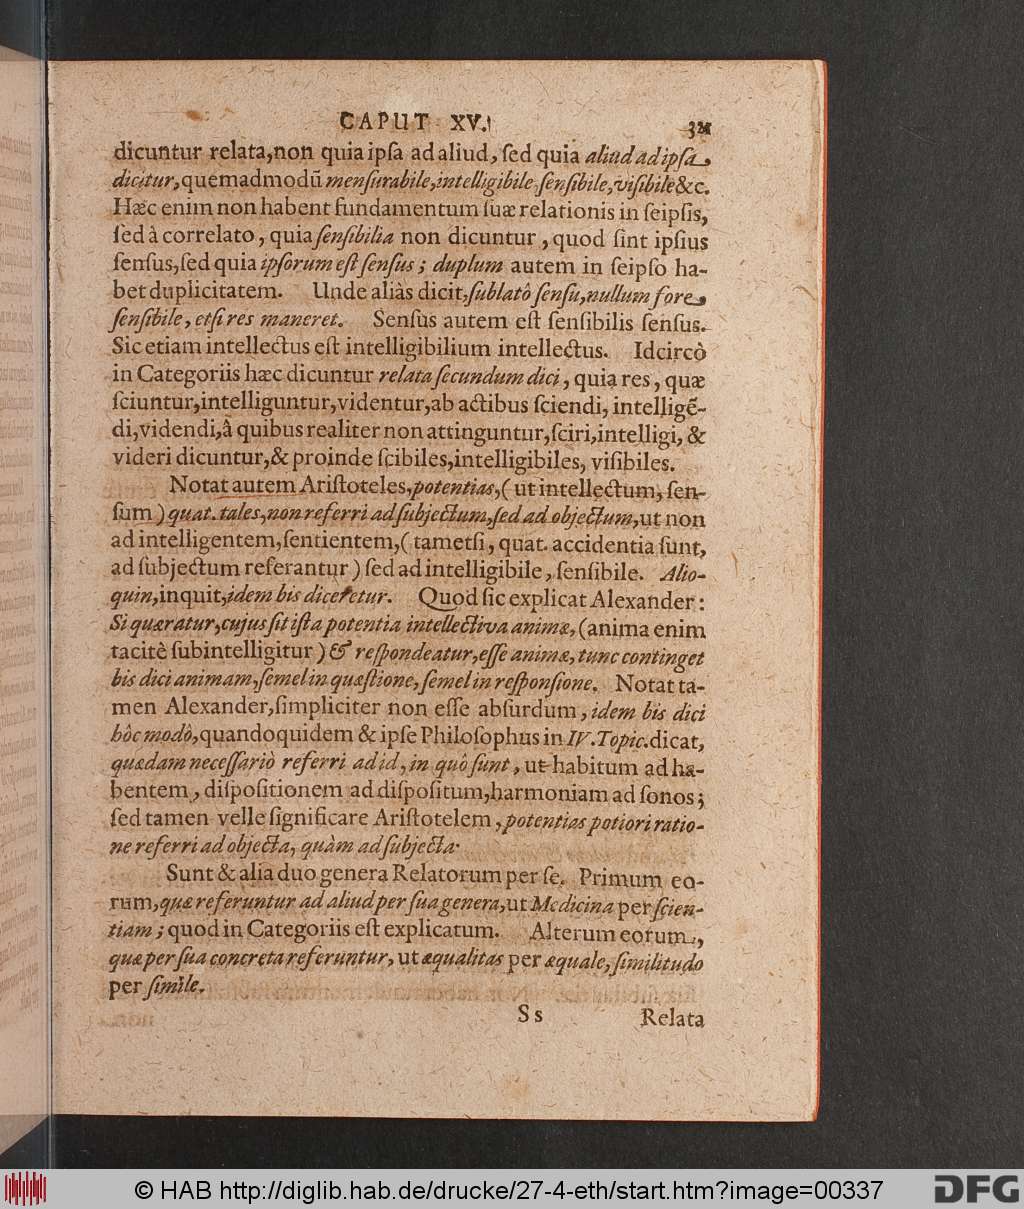 CAPUT XV.
321
dicuntur relata,non quia ipſa ad aliud, ſed quia aliud ad ipſa
dicitur,quemadmodũ menſurabile,intelligibile ſenſibile,viſibile &c.
Hæc enim non habent fundamentum ſuæ relationis in ſeipſis,
ſed à correlato, quia ſenſibilia non dicuntur, quod ſint ipſius
ſenſus,ſed quia ipſorum eſt ſenſus; duplum autem in ſeipſo ha-
bet duplicitatem. Unde aliàs dicit,ſublatô ſenſu,nullum fore
ſenſibile, etſi res maneret. Senſus autem eſt ſenſibilis ſenſus.
Sic etiam intellectus eſt intelligibilium intellectus. Idcircò
in Categoriis hæc dicuntur relata ſecundum dici, quia res, quæ
ſciuntur,intelliguntur,videntur,ab actibus ſciendi, intelligẽ-
di,videndi,â quibus realiter non attinguntur,ſciri,intelligi, &
videri dicuntur,& proinde ſcibiles,intelligibiles, viſibiles.
Notat autem Ariſtoteles,potentias,(ut intellectum, ſen-
ſum) quat. tales,non referri ad ſubjectum,ſed ad objectum,ut non
ad intelligentem,ſentientem,(tametſi, quat. accidentia ſunt,
ad ſubjectum referantur) ſed ad intelligibile, ſenſibile. Alio-
quin,inquit,idem bis diceretur. Quod ſic explicat Alexander:
Si quæratur,cujus ſit iſta potentia intellectiva animæ,(anima enim
tacitè ſubintelligitur) & reſpondeatur,eſſe animæ,tunc continget
bis dici animam,ſemel in quæſtione,ſemel in reſponſione. Notat ta-
men Alexander,ſimpliciter non eſſe abſurdum, idem bis dici
hôc modô,quandoquidem & ipſe Philoſophus in IV. Topic. dicat,
quædam neceſſariò referri ad id, in quô ſunt, ut habitum ad ha-
bentem, diſpoſitionem ad diſpoſitum,harmoniam ad ſonos;
ſed tamen velle ſignificare Ariſtotelem, potentias potiori ratio-
ne referri ad objecta, quàm ad ſubjecta.
Sunt & alia duo genera Relatorum per ſe. Primum eo-
rum,quæ referuntur ad aliud per ſua genera,ut Medicina per ſcien-
tiam; quod in Categoriis eſt explicatum. Alterum eorum,
quæ per ſua concreta referuntur, ut æqualitas per æquale, ſimilitudo
per ſimile.
S s
Relata
© HAB http://diglib.hab.de/drucke/27-4-eth/start.htm?image=00337
DFG